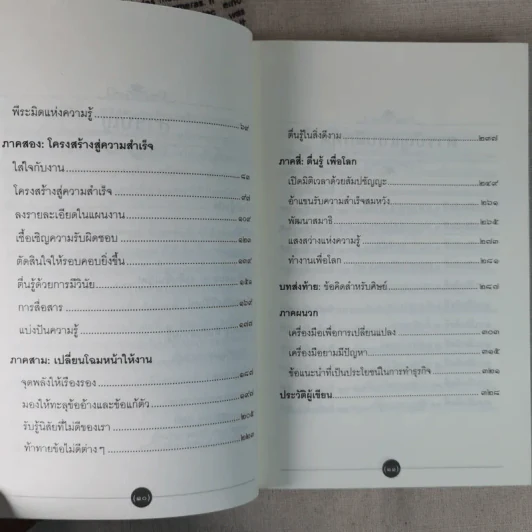 พีระมิดแห่งความรู้ ๖๙
ภาคสอง: โครงสร้างสู่ความสำเร็จ
ใส่ใจกับงาน ๘๑
โครงสร้างสู่ความสำเร็จ ๙๖
ลงรายละเอียดในแผนงาน ๑๐๙
เชื้อเชิญความรับผิดชอบ ๑๒๑
ตัดสินใจให้รอบคอบยิ่งขึ้น ๑๓๙
ตื่นรู้ด้วยการมีวินัย ๑๕๑
การสื่อสาร ๑๖๙
แบ่งปันความรู้
ภาคสาม: เปลี่ยนโฉมหน้าให้งาน
จุดพลังให้เรืองรอง
มองให้ทะลุข้ออ้างและข้อแก้ตัว
รับรู้นิสัยที่ไม่ดีของเรา ๒๐๕
ท้าทายข้อไม่ดีต่างๆ
(๑๐)
ตื่นรู้ในสิ่งดีงาม ๒๓๗
ภาคสี่: ตื่นรู้ เพื่อโลก
เปิดมิติเวลาด้วยสัมปชัญญะ ๒๔๙
อ้าแขนรับความสำเร็จสมหวัง ๒๖๑
พัฒนาสมาธิ ๒๖๕
แสงสว่างแห่งความรู้ ๒๗๓
ทำงานเพื่อโลก ๒๘๑
บทส่งท้าย: ข้อคิดสำหรับศิษย์ ๒๘๗
ภาคผนวก
เครื่องมือเพื่อการเปลี่ยนแปลง ๓๐๓
เครื่องมือยามมีปัญหา ๓๑๕
ข้อแนะนำที่เป็นประโยชน์ในการทำธุรกิจ ๓๒๑
ประวัติผู้เขียน ๓๒๘
(๑๑)